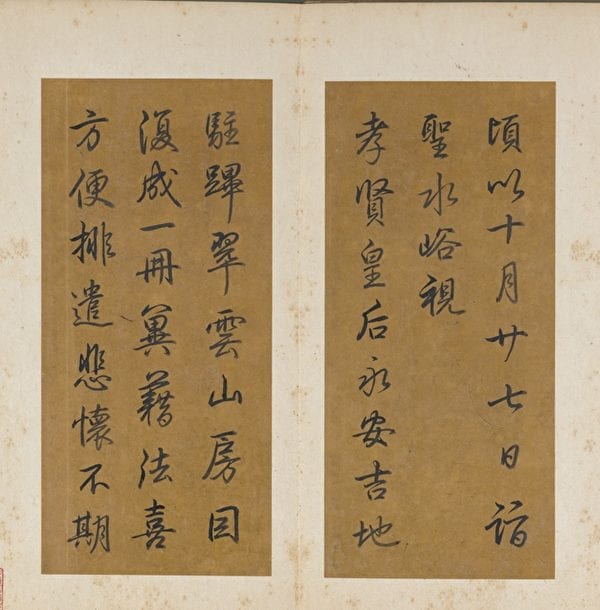 頃以十月廿七日詣
聖水峪視
孝賢皇后永安吉地
駐蹕翠雲山房因
復成一冊冀藉法喜
方便排遣悲懷不期